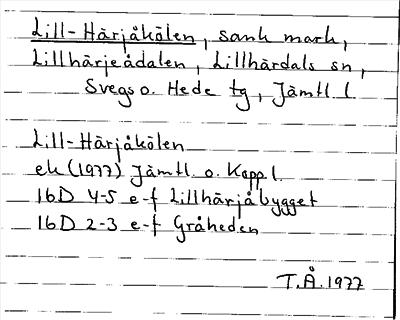 Lill-Härjåkölen, sank mark,
Lillhärjeådalen, Lillhärdals sn,
Svegs o. Hede tg, Jämtl. l
Lill-Härjåkölen
ek (1977) Jämtl. o. Kopp. l.
16D 4-5 e-f Lillhärjåbygget
16D 2-3 e-f Gråheden
T.Å. 1977